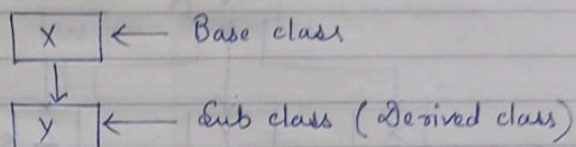 X ← Base class
Y ← Sub class (Derived class)